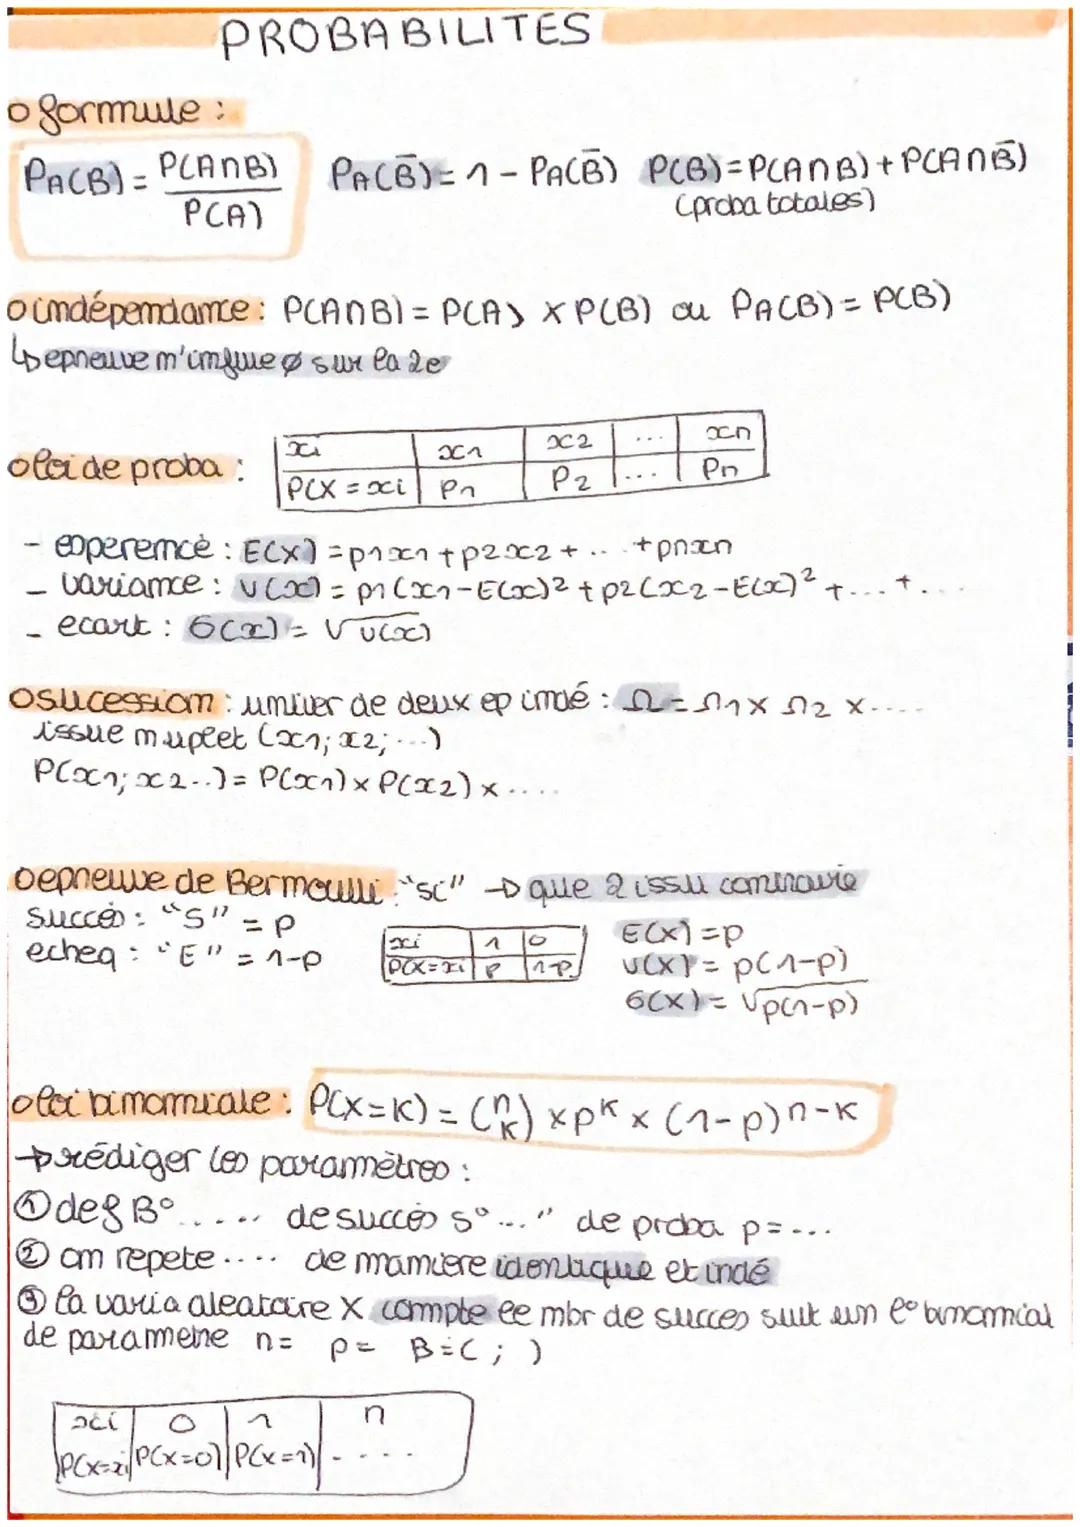 PROBABILITES
o formule :
PA(B) = P(A∩B) / P(A)   PA(B̄) = 1 - PA(B̄)   P(B) = P(A∩B) + P(A∩B̄)
(proba totales)
o indépendance : P(A∩B) = P(A) × P(B) ou PA(B) = P(B)
↳ epreuve n'influe ø sur la 2e
o loi de proba :
xi | x1 | x2 | ... | xn
P(X = xi | P1 | P2 | ... | Pn
- esperence : E(X) = p1x1 + p2x2 + ... + pnxn
- variance : V(x) = p1(x1-E(x)² + p2(x2-E(x)² + ... + ...
- ecart : σ(x) = √v(x)
o sucession : univer de deux ep indé : Ω = Ω1 × Ω2 × ....
issue nuplet (x1; x2; ...)
P(x1; x2..) = P(x1) × P(x2) × ....
o epreuve de Bernoulli : "sc" → que 2 issu contraire
succès : "S" = p
echeq : "E" = 1-p
xi | 1 | 0
P(X=xi | p | 1-p
E(X) = p
V(X) = p(1-p)
σ(X) = √p(1-p)
o loi binomiale : P(X=K) = (n K) × p^K × (1-p)^n-K
→ rédiger les paramètres :
① def B° ..... de succès s° ..." de proba p = ...
② on repete .... de manière identique et indé
③ la varia aleatoire X compte le nbr de succes suit un l° binomial
de parametre n= p= B=( ; )
xi | 0 | 1 | n
P(X=xi | P(X=0) | P(X=1) | ....